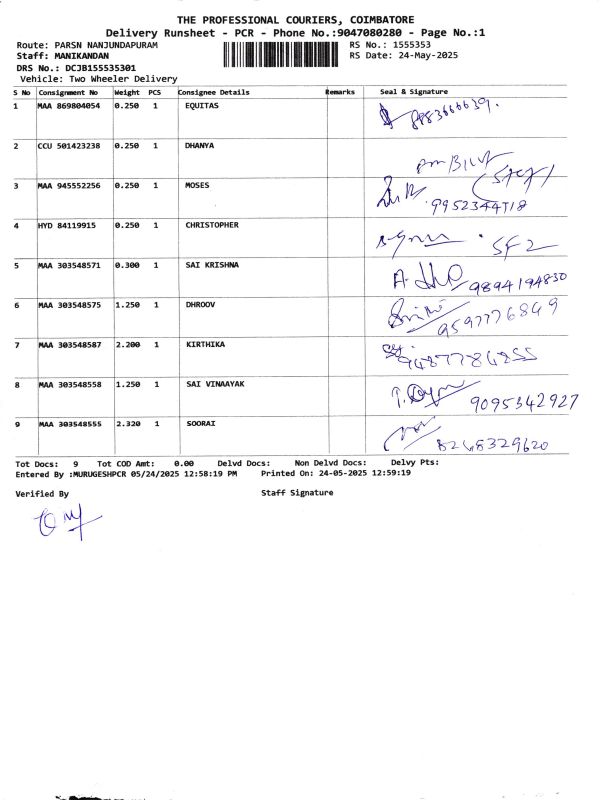 THE PROFESSIONAL COURIERS, COIMBATORE
Delivery Runsheet - PCR - Phone No.:9047080280 - Page No.:1
Route: PARSN NANJUNDAPURAM RS No.: 1555353
Staff: MANIKANDAN RS Date: 24-May-2025
DRS No.: DCJB155535301
Vehicle: Two Wheeler Delivery
S No Consignment No Weight PCS Consignee Details Remarks Seal & Signature
1 MAA 869804054 0.250 1 EQUITAS
2 CCU 501423238 0.250 1 DHANYA
3 MAA 945552256 0.250 1 MOSES
4 HYD 84119915 0.250 1 CHRISTOPHER SF2
5 MAA 303548571 0.300 1 SAI KRISHNA 9894194830
6 MAA 303548575 1.250 1 DHROOV
7 MAA 303548587 2.200 1 KIRTHIKA
8 MAA 303548558 1.250 1 SAI VINAAYAK 9095342927
9 MAA 303548555 2.320 1 SOORAJ 8248329620
Tot Docs: 9 Tot COD Amt: 0.00 Delvd Docs: Non Delvd Docs: Delvy Pts:
Entered By :MURUGESHPCR 05/24/2025 12:58:19 PM Printed On: 24-05-2025 12:59:19
Verified By Staff Signature